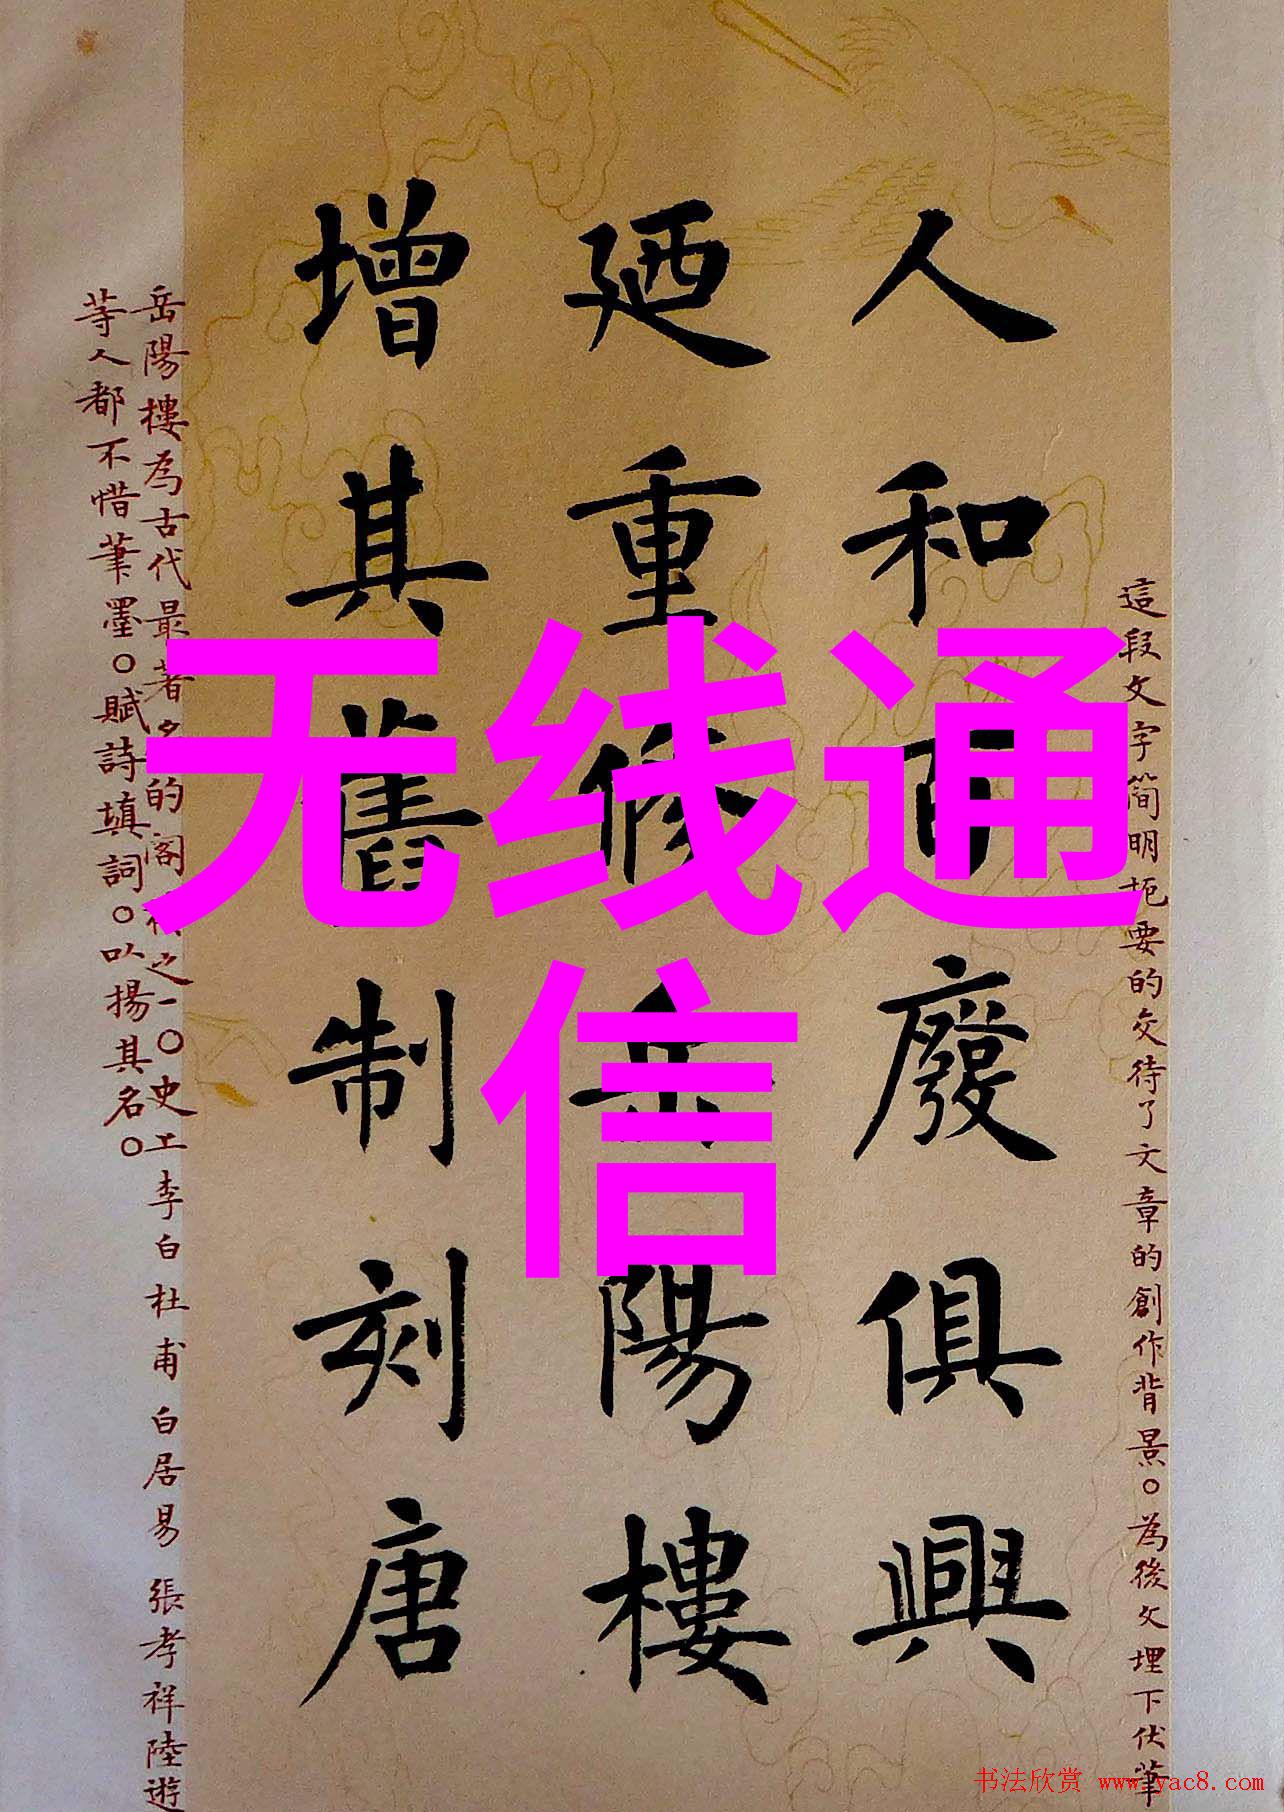 這段文字简明扼要的交待了文章的創作背景。為後文埋下伏筆
人和百廢俱興
廼重修岳陽樓
增其舊制刻唐
岳陽樓為古代最著名的阁樓之一。史上李白杜甫白居易張孝祥陸遊
等人都不惜筆墨。賦詩填詞。以揚其名。
无线通
信
书法欣赏 www.yac8.com